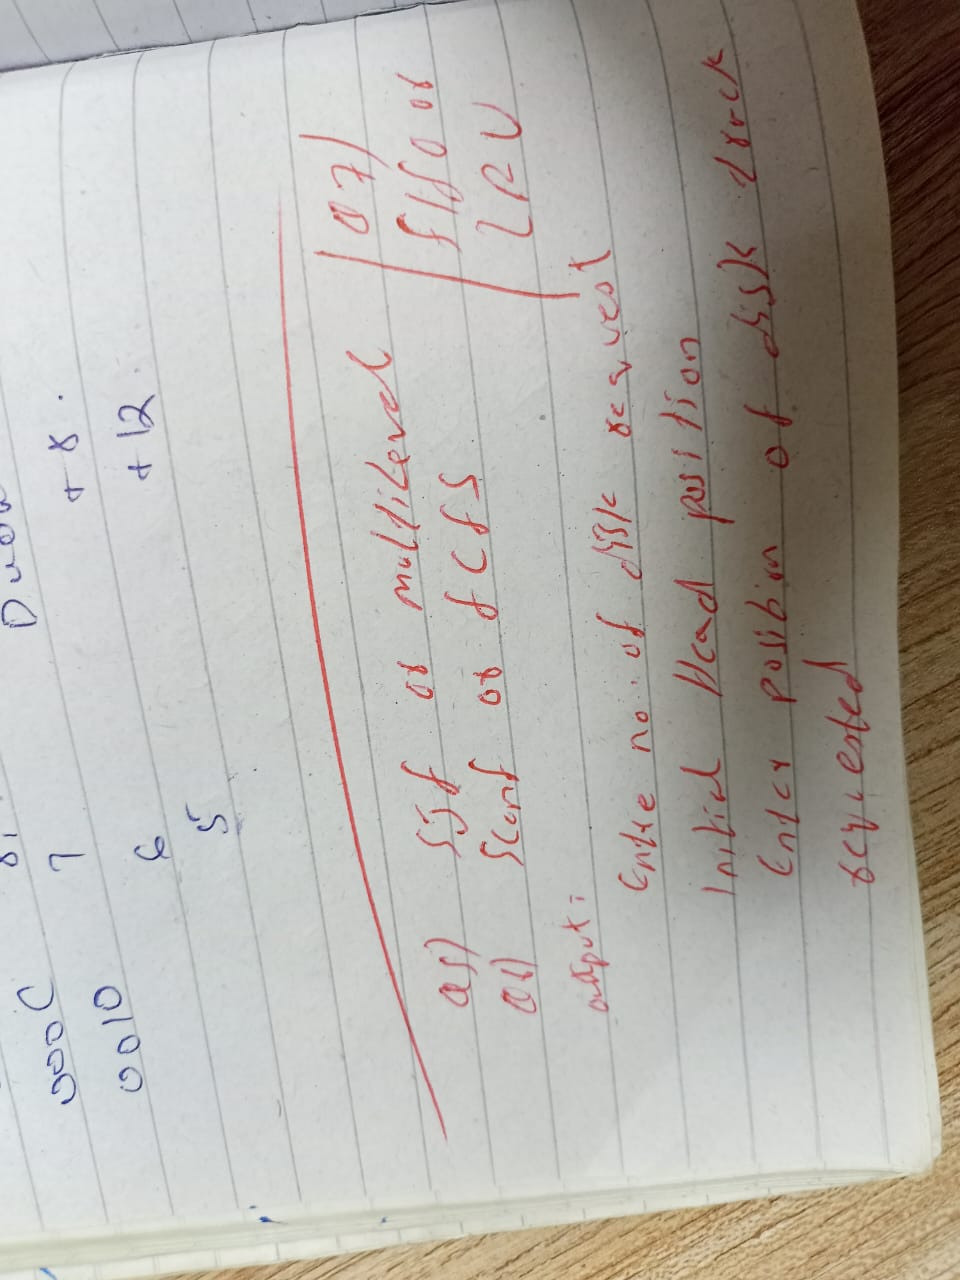 0,
000C 7 +8.
0010 6 +12
5
Q5) SJf or multilevel
Q6) Scanf or fCfS
/ Q7)
fIfO or
LRU
output:
Entre no. of disk request
Initial Head position
Enter position of disk track
requested